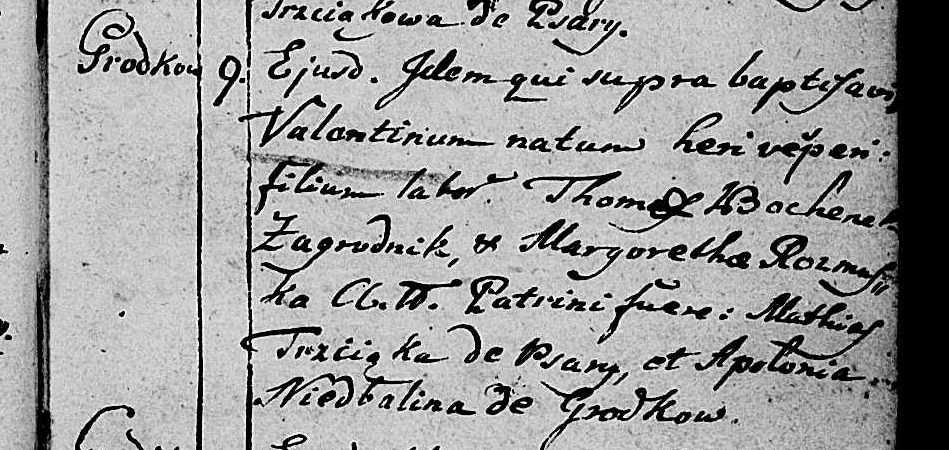 Trzciąkowa de Psary.
Grodkow 9. Ejusd. Idem qui supra baptisavi
Valentinum natum heri vesperi:
filium labor. Thomæ Bochenek
Zagrodnik, & Margorethæ Rozmus
ka C. L. Patrini fuere: Mathias
Trzciąka de Psary, et Apolonia
Niedbalina de Grodkow.